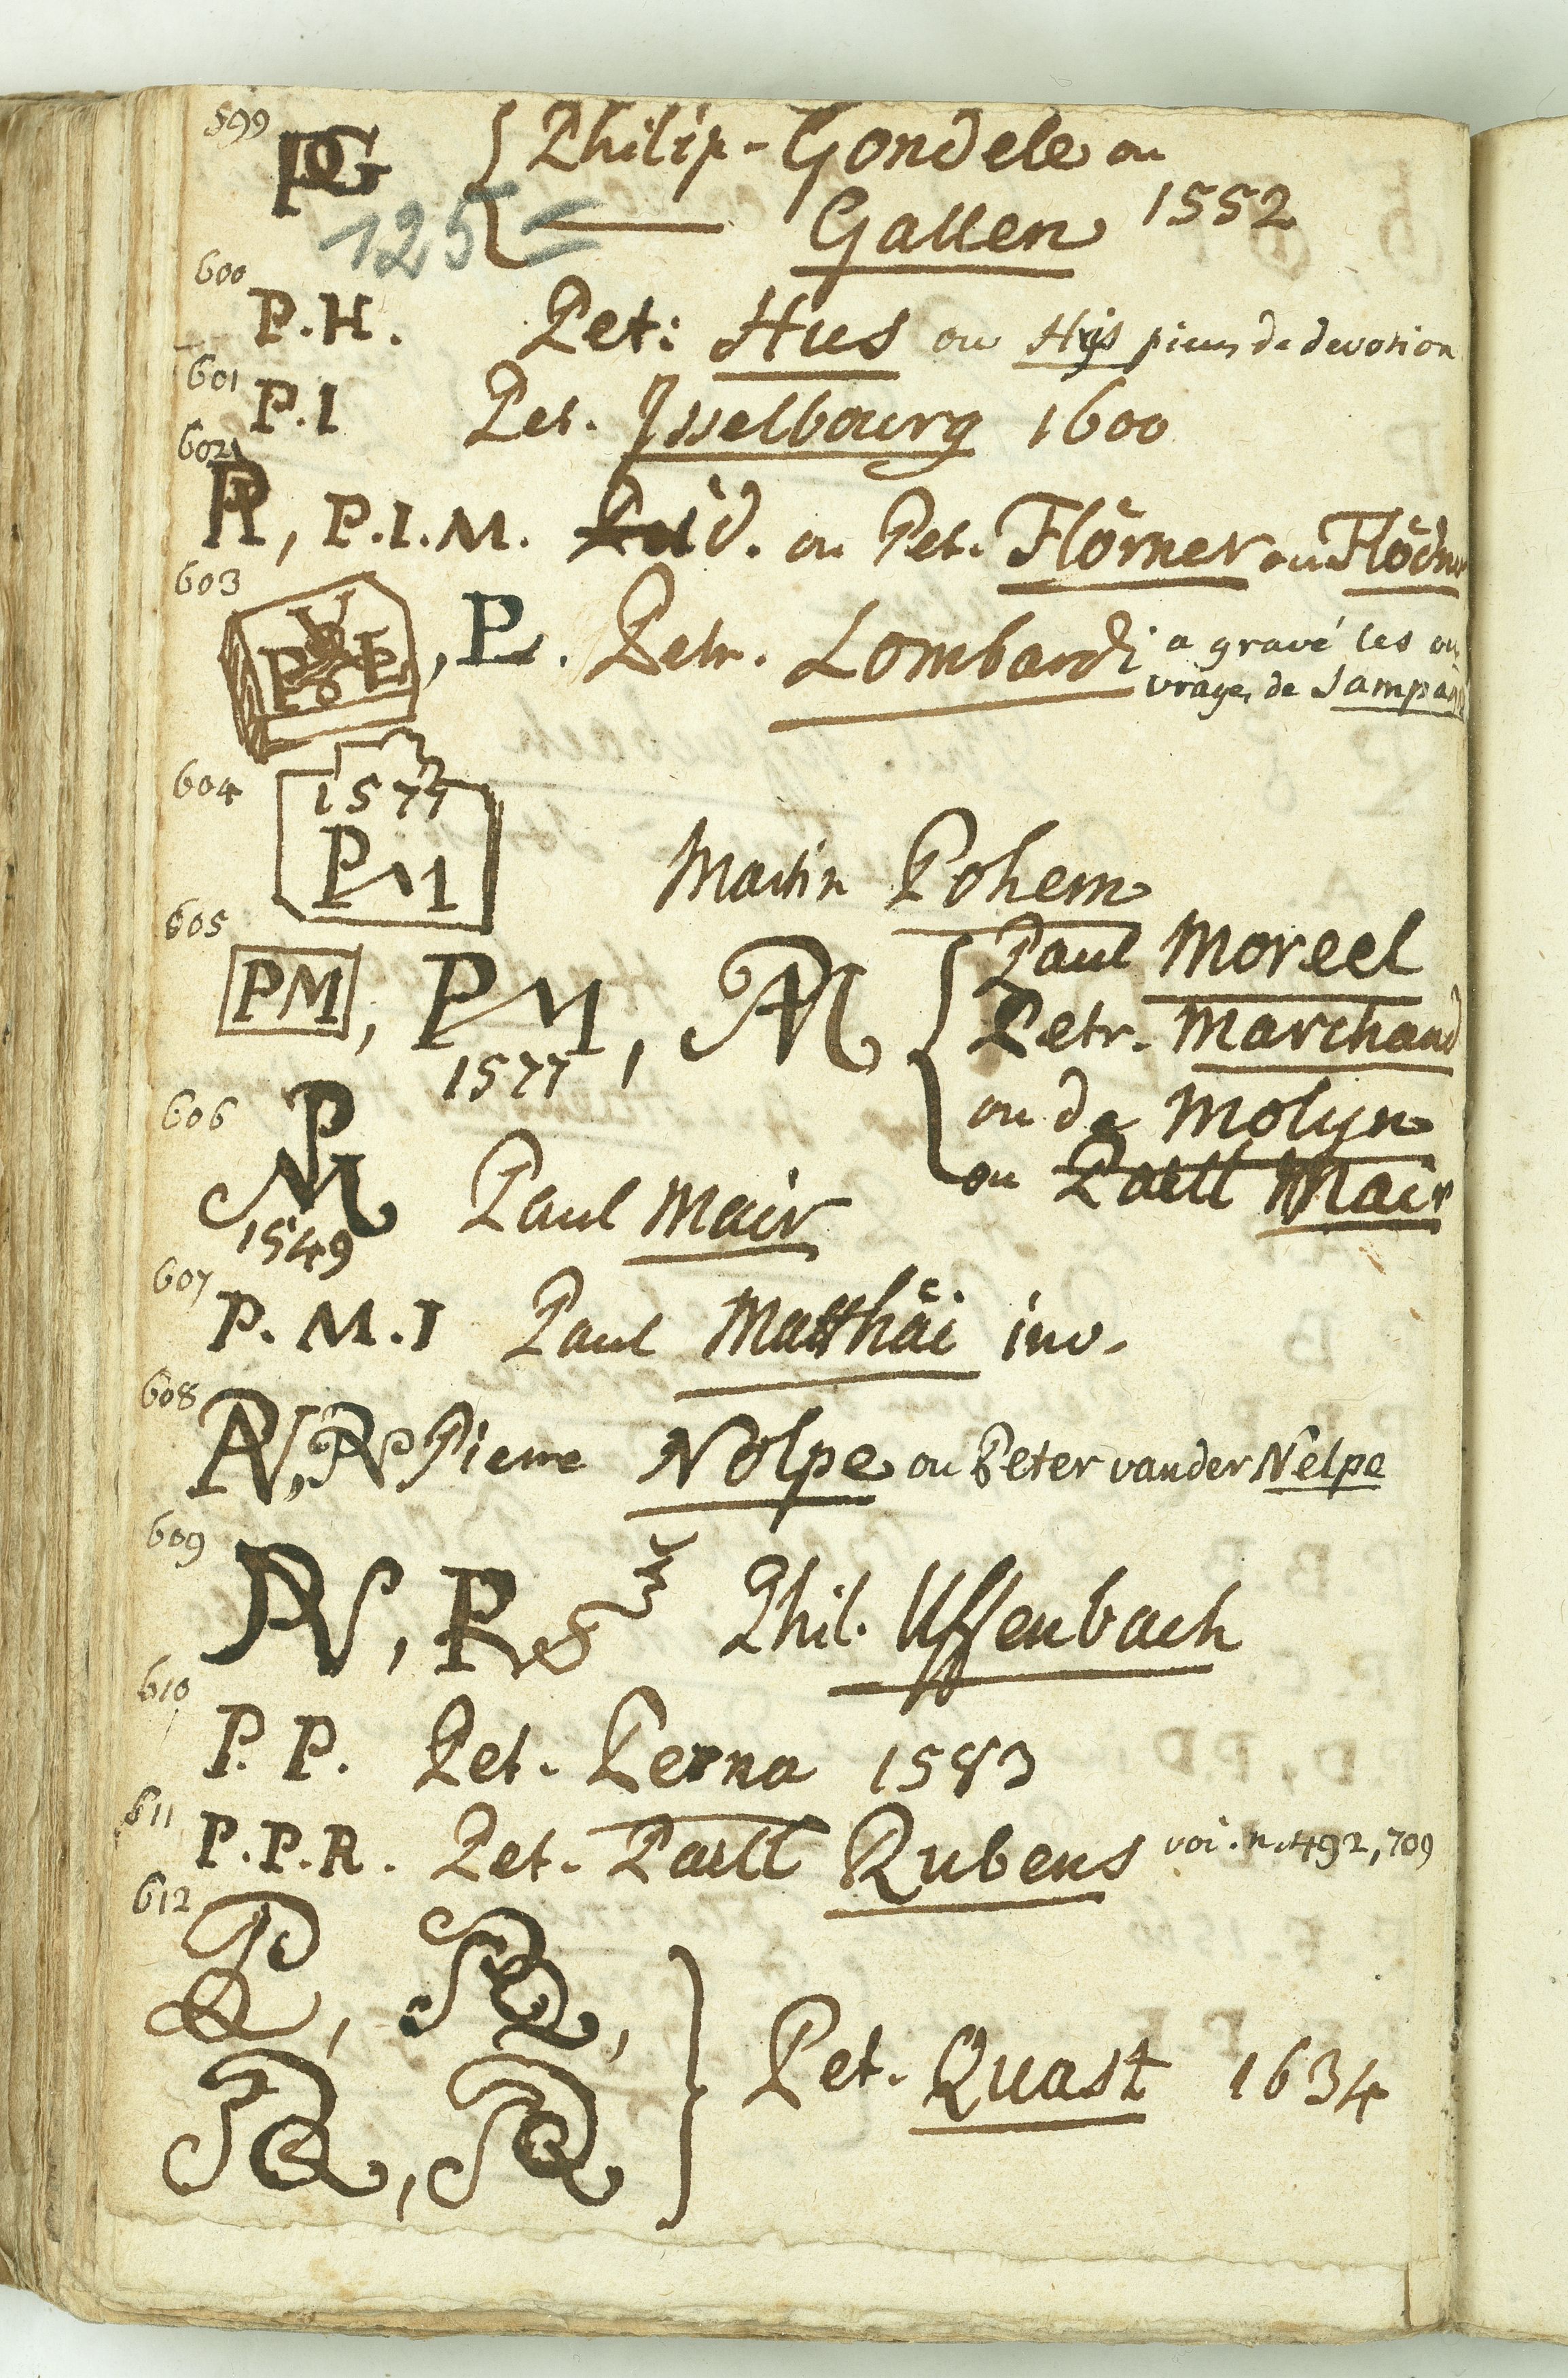 599 PG { Philip - Gondele ou
125 = Gallen 1552
600 P.H. Pet: Hus ou Hys pieces de devotion
601 P.I Pet. Isselbourg 1600
602 PI, P.I.M. id. ou Pet. Flörner ou Flödner
603 PVL, PL. Petr. Lombardi a gravé les ou
vrages de
604 1577
PM Martin Pohem
605 PM, PM, PM { Paul Moreel
1577 Petr. Marchand
ou de Molijn
ou Paull Mair
606 PM Paul Mair
1549
607 P.M.I Paul Matthäi inv.
608 PN, PN Pierre Nolpe ou Peter vander Nelpe
609 PV, PV Phil. Uffenbach
610 P.P. Pet. Perna 1583
611 P.P.R. Pet. Paull Rubens voi. n. 492, 709
612 PQ, PQ,
PQ, PQ } Pet. Quast 1634